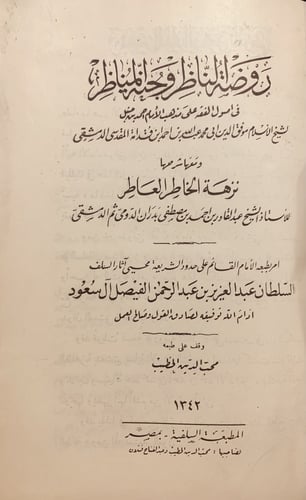 روضة الناظر وجنة المناظر
في أصول الفقه على مذهب الإمام احمد بن حنبل
لشيخ الاسلام موفق الدين أبي محمد عبد الله بن احمد بن قدامة المقدسي الدمشقي
ومعها شرحها
نزهة الخاطر العاطر
للأستاذ الشيخ عبد القادر بن احمد بن مصطفى بدران الدومي ثم الدمشقي
امر بطبعه الأمام القائم على حدود الشريعة محيي آثار السلف
السلطان عبد العزيز بن عبد الرحمن الفيصل آل سعود
ادام الله توفيقه لصادق القول وصالح العمل
وقف على طبعه
محب الدين الخطيب
١٣٤٢
المطبعة السلفية - بمصر
لصاحبيها : محب الدين الخطيب وعبد الفتاح قتلان